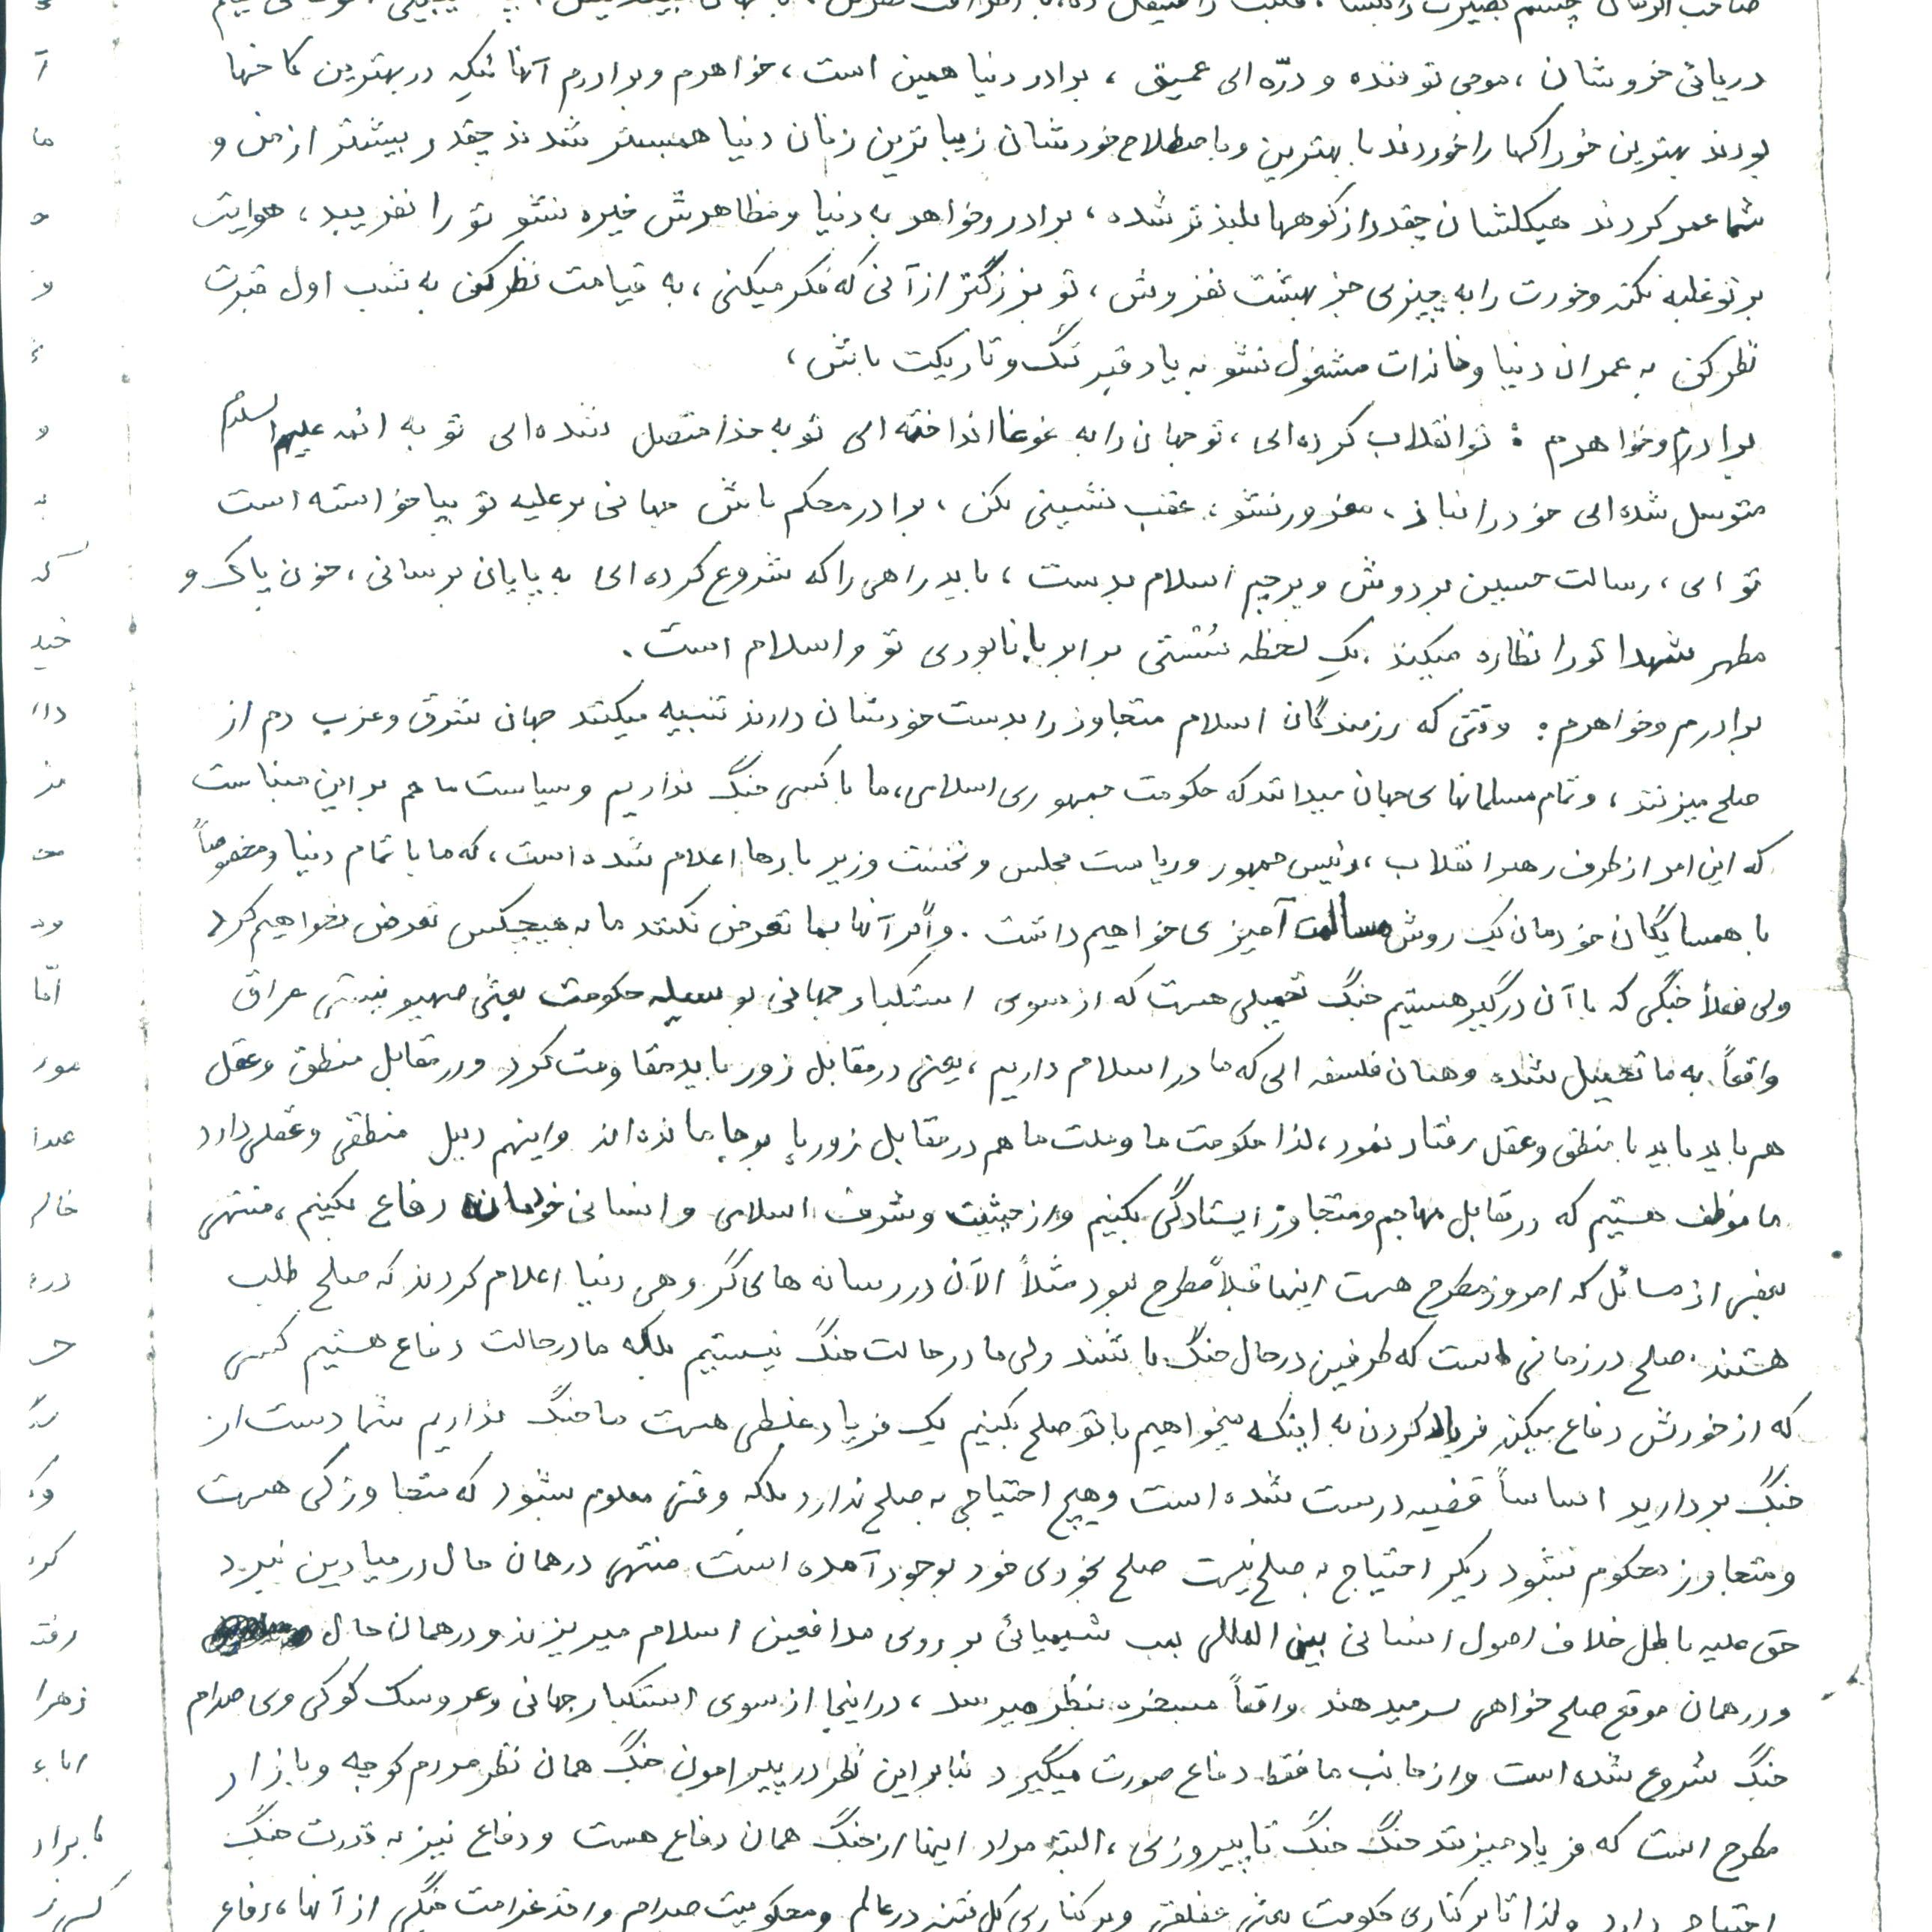 صاحب الزمان چشم بصیرت را بگشا، قلبت را صیقل ده،
دریائی خروشان، موجی توفنده و درّه ای عمیق، برادر دنیا همین است، خواهرم و برادرم آنهائیکه در بهترین کاخها
بودند بهترین خوراکها را خوردند با بهترین و باصطلاح خودشان زیباترین زنان دنیا همبستر شدند چقدر بیشتر از من و
شما عمر کردند هیکلشان چقدر از کوهها بلندتر شده، برادر و خواهر به دنیا و مظاهرش خیره نشو تو را نفریبد، هوایت
بر تو غلبه نکند و خودت را به چیزی جز بهشت نفروش، تو بزرگتر از آنی که فکر میکنی، به قیامت نظر کن به شب اول قبرت
نظر کن به عمران دنیا و خانه‌ات مشغول نشو به یاد قبر تنگ و تاریکت باش،
برادرم و خواهرم: تو انقلاب کرده‌ای، تو جهان را به غوغا انداخته‌ای تو به خدا متصل شده‌ای تو به ائمه علیهم السلام
متوسل شده‌ای خود را نباز، مغرور نشو، عقب نشینی نکن، برادر محکم باش جهانی بر علیه تو بپا خواسته است
تو ای، رسالت حسین بر دوش و پرچم اسلام بدست، باید راهی را که شروع کرده‌ای به پایان برسانی، خون پاک و
مطهر شهدا تو را نظاره میکند، یک لحظه سُستی برابر با نابودی تو و اسلام است.
برادرم و خواهرم: وقتی که رزمندگان اسلام متجاوز را بدست خودشان دارند تنبیه میکنند جهان شرق و غرب دم از
صلح میزنند، و تمام مسلمانهای جهان میدانند که حکومت جمهوری اسلامی، ما با کسی جنگ نداریم و سیاست ما هم بر این مبناست
که این امر از طرف رهبر انقلاب، رئیس جمهور و ریاست مجلس و نخست وزیر بارها اعلام شده است، که ما با تمام دنیا و مخصوصاً
با همسایگان خودمان یک روش مسالمت آمیزی خواهیم داشت. و اگر آنها بما تعرض نکنند ما به هیچکس تعرض نخواهیم کرد
ولی فعلاً جنگی که با آن درگیر هستیم جنگ تحمیلی هست که از سوی استکبار جهانی بوسیله حکومت بعثی صهیونیستی عراق
واقعاً به ما تحمیل شده و همان فلسفه ای که ما در اسلام داریم، یعنی در مقابل زور باید مقاومت کرد و در مقابل منطق و عقل
هم باید باید با منطق و عقل رفتار نمود، لذا حکومت ما و ملت ما هم در مقابل زور پا بر جا مانده‌اند و اینهم دلیل منطقی و عقلی دارد
ما موظف هستیم که در مقابل مهاجم و متجاوز ایستادگی بکنیم و از حیثیت و شرف اسلامی و انسانی خودمان دفاع بکنیم، منتهی
بعضی از مسائل که امروز مطرح هست اینها قبلاً مطرح نبود مثلاً الآن در رسانه های گروهی دنیا اعلام کردند که صلح طلب
هستند، صلح در زمانی است که طرفین در حال جنگ باشند ولی ما در حالت جنگ نیستیم بلکه ما در حالت دفاع هستیم کسی
که از خودش دفاع میکند فریاد کردن به اینکه میخواهیم با تو صلح بکنیم یک فریاد غلطی هست ما جنگ نداریم شما دست از
جنگ بردارید اساساً قضیه درست شده است و هیچ احتیاجی به صلح ندارد بلکه وقتی معلوم بشود که متجاوز کی هست
و متجاوز محکوم بشود دیگر احتیاج به صلح نیست صلح بخودی خود بوجود آمده است منتهی در همان حال در میادین نبرد
حق علیه باطل خلاف اصول انسانی بین المللی بمب شیمیائی بر روی مدافعین اسلام میریزند و در همان حال
و در همان موقع صلح خواهی سر میدهند واقعاً مسخره بنظر میرسد، در اینجا از سوی استکبار جهانی و عروسک کوکی وی صدام
جنگ شروع شده است و از جانب ما فقط دفاع صورت میگیرد بنابر این نظر در پیرامون جنگ همان نظر مردم کوچه و بازار
مطرح است که فریاد میزنند جنگ جنگ تا پیروزی، البته مراد اینها از جنگ همان دفاع هست و دفاع نیز به قدرت جنگ
احتیاج دارد و لذا تا برکناری حکومت بعثی عفلقی و محکومیت صدام و اخذ غرامت جنگی از آنها، دفاع